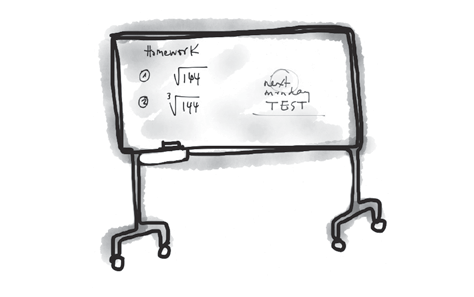 Homework
① √144
② ³√144
next
monday
TEST